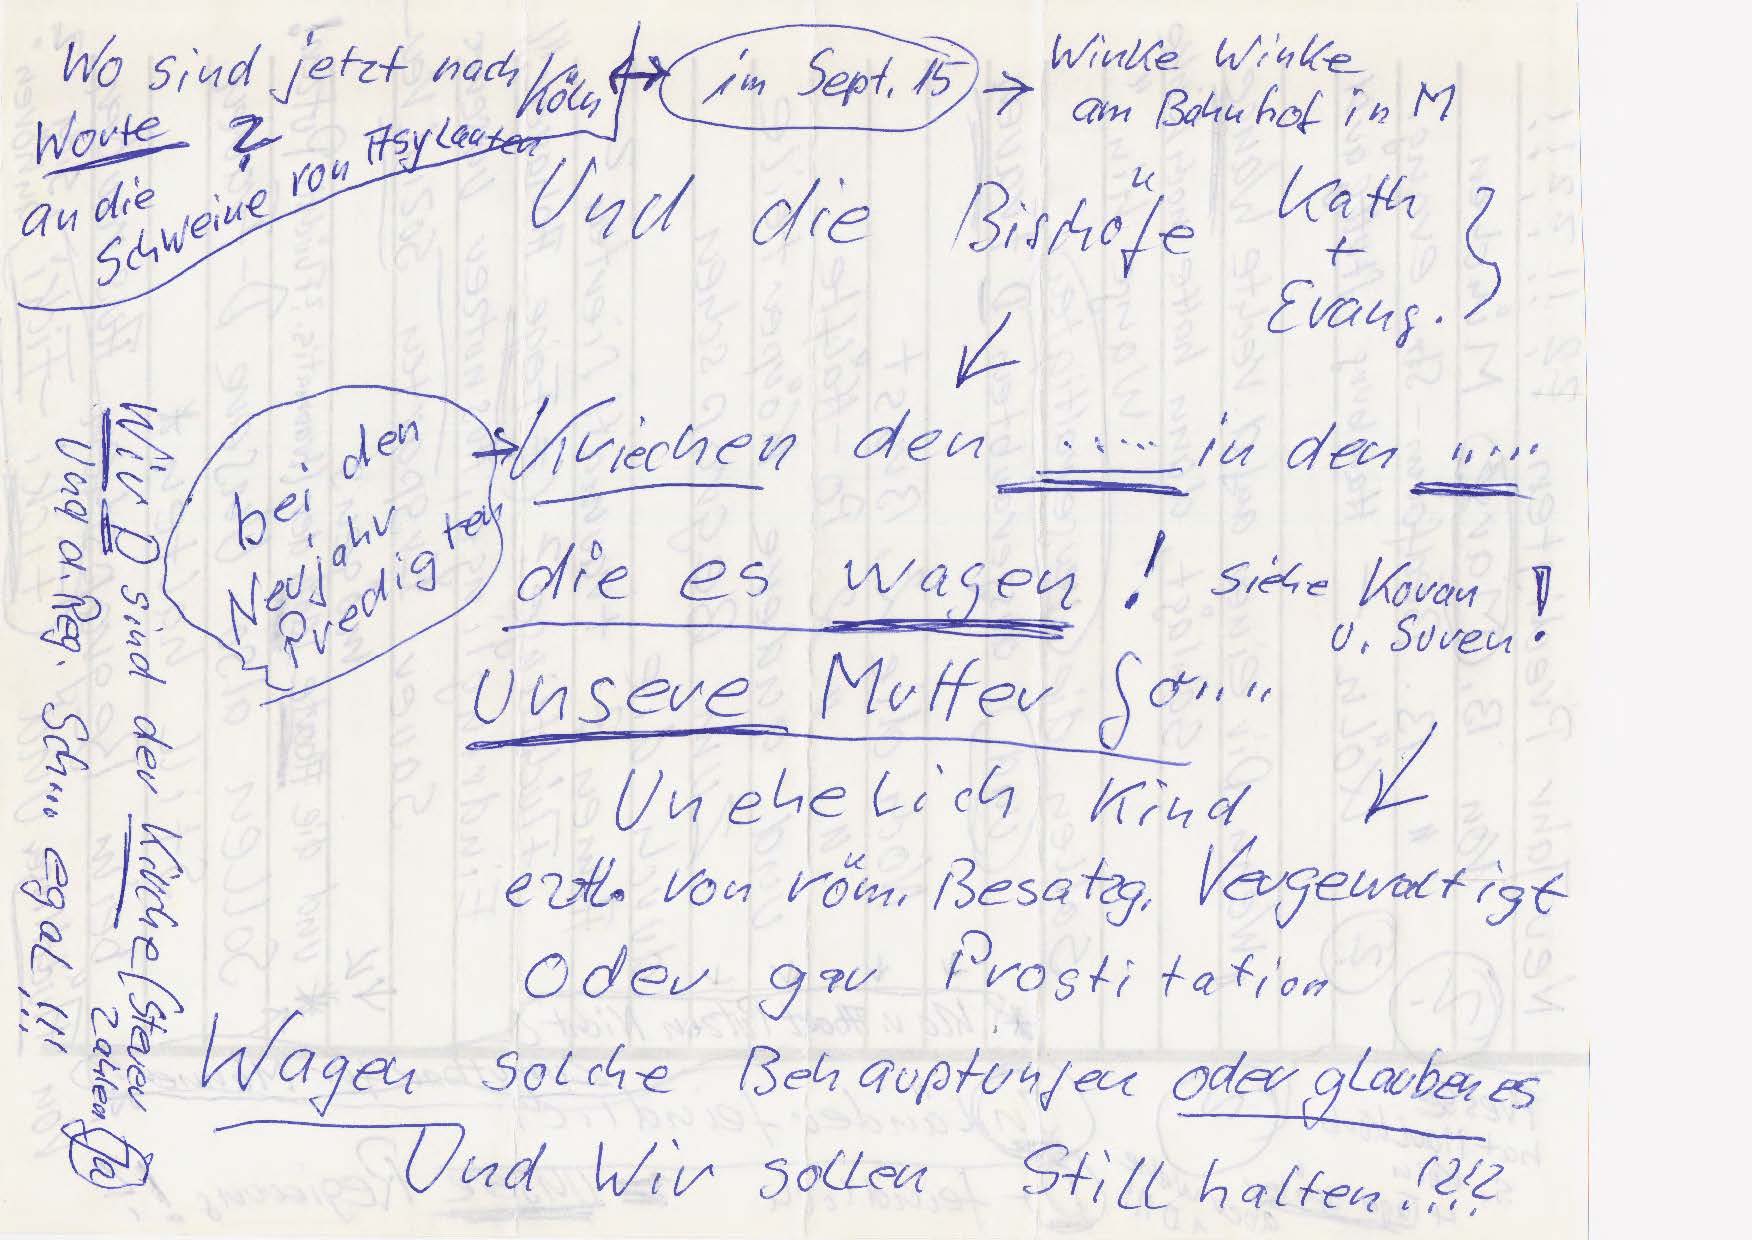 Wo sind jetzt nach Köln
im Sept. 15
Winke Winke
am Bahnhof in M
Worte ?
an die
Schweine von Asylanten
Und die Bischöfe Kath
+
Evang.
bei den
Neujahr
Predigten
Kriechen den ..... in den .....
die es wagen ! siehe Koran !
u. Suren
Unsere Mutter Go....
Unehelich Kind
eztl. von röm. Besatzg. Vergewaltigt
Oder gar Prostitation
Wagen solche Behauptungen oder glauben es
Und Wir sollen Still halten !?!?
Wir D sind der Kirche (Steuer
zahlen Ja)
Und d. Reg. Sch... egal !!!